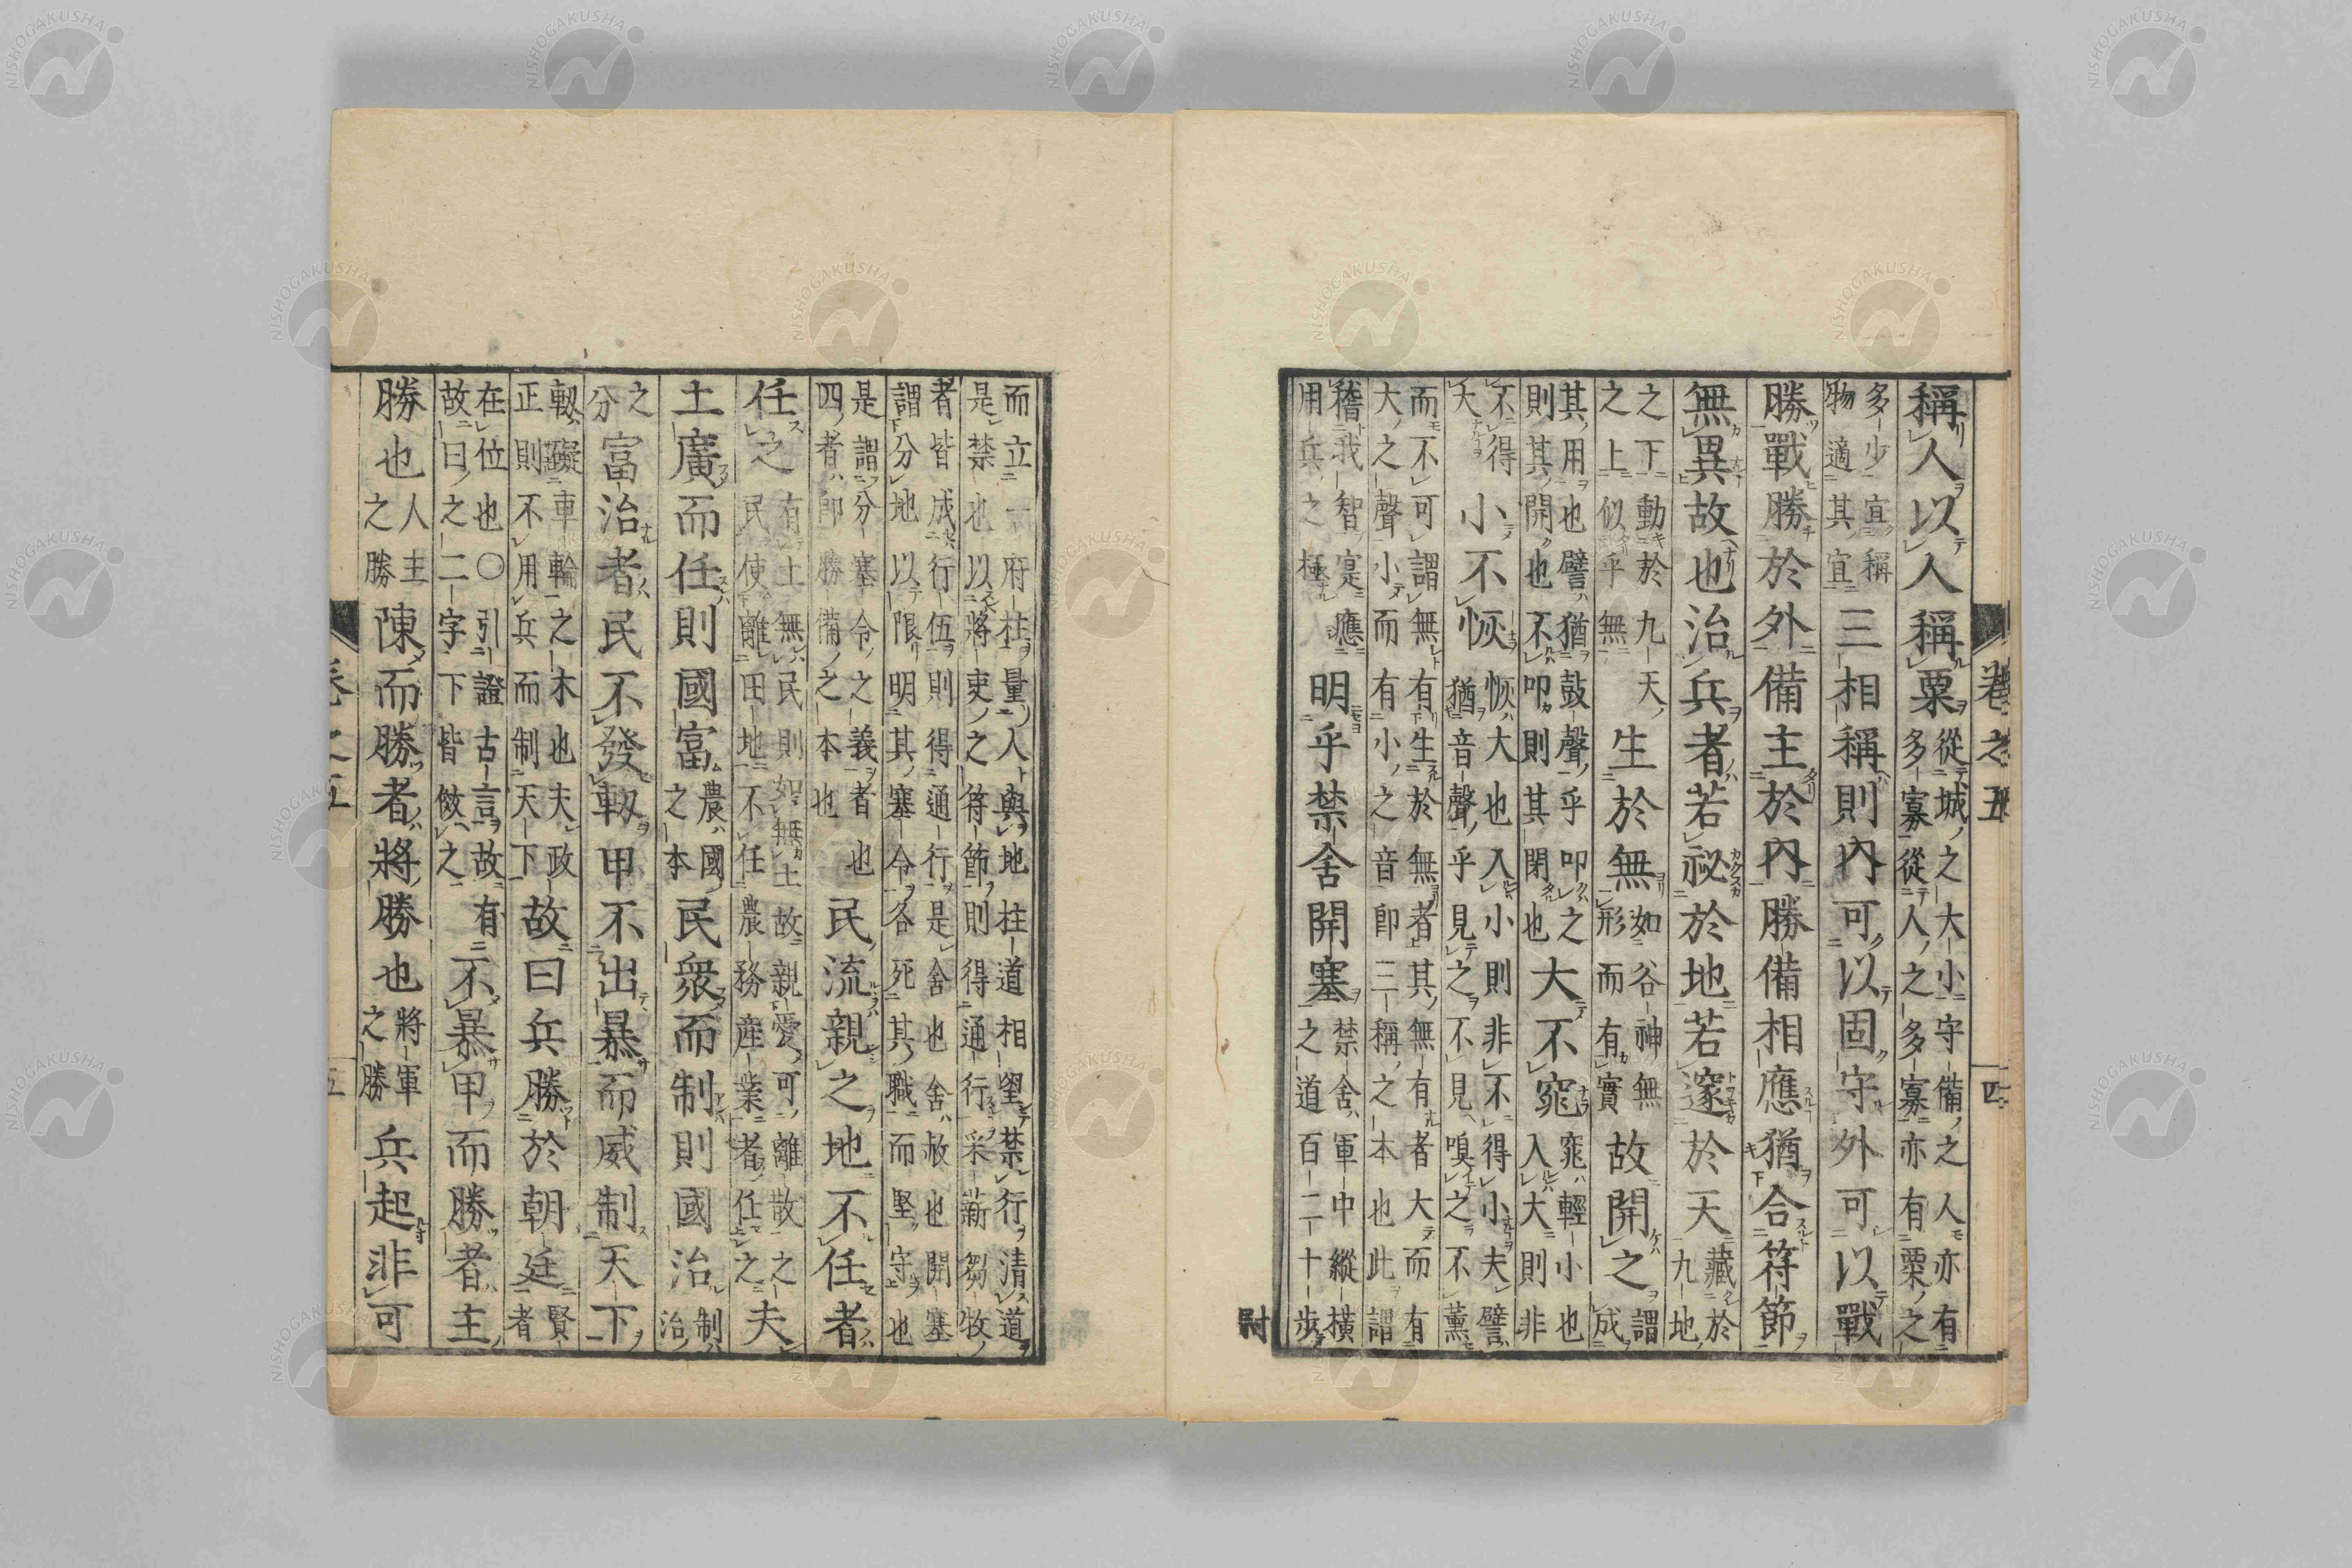 卷之五　四
稱人以人稱粟
從城之大小守備之人亦有
多寡從人之多寡亦有粟之
多少宜稱
物適其宜
三相稱則內可以固守外可以戰
勝戰勝於外備主於內勝備相應猶合符節
無異故也治兵者若祕於地若邃於天
藏於
九地
之下動於九天
之上似乎無
生於無
如谷神無
形而有實
故開之
謂
成
其用也譬猶鼓聲乎叩之
則其開也不叩則其閉也
大不窕
窕輕小也
入大則非
不得
大
小不恢
恢大也入小則非不得小夫譬
猶音聲乎見之不見嗅之不薰
而不可謂無有生於無者其無有者大而有
大之聲小而有小之音即三稱之本也此謂
稽我智寔應
用兵之極
明乎禁舍開塞
禁舍軍中縱橫
之道百二十步
尉
而立一府柱量人與地柱道相望禁行清道
是禁也以將吏之符節則得通行采薪芻牧
者皆成行伍則得通行是舍也舍赦也開塞
謂分地以限明其塞令各死其職而堅守也
是謂分塞令之義者也
四者即勝備之本也
民流親之地不任者
任之
有土無民則如無土故親愛可離散之
民使離田地不任農務産業者任之
夫
土廣而任則國富
農國
之本
民衆而制則國治
制
治
之
分
富治者民不發軔甲不出暴而威制天下
軔礙車輪之木也夫政
正則不用兵而制天下
故曰兵勝於朝廷
賢
者
在位也○引證古言故有
故曰之二字下皆倣之
不暴甲而勝者主
勝也
人主
之勝
陳而勝者將勝也
將軍
之勝
兵起非可
卷之五　五